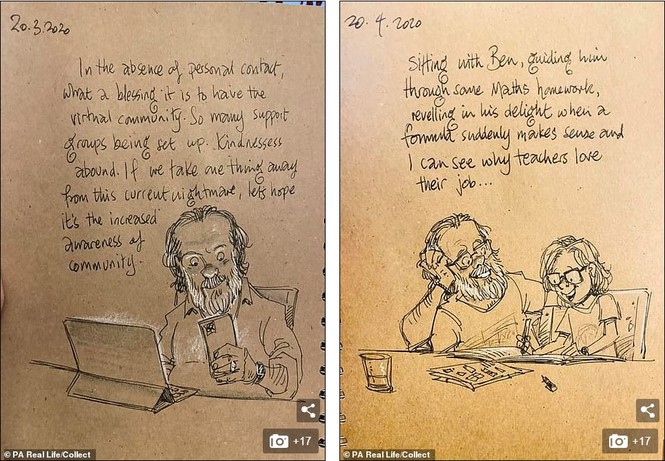 20.3.2020
In the absence of personal contact,
what a blessing it is to have the
virtual community. So many support
groups being set up. Kindnessess
abound. If we take one thing away
from this current nightmare, lets hope
it's the increased
awareness of
community.
+17
© PA Real Life/Collect
20.4.2020
Sitting with Ben, guiding him
through some Maths homework,
revelling in his delight when a
formula suddenly makes sense and
I can see why teachers love
their job...
+17
© PA Real Life/Collect